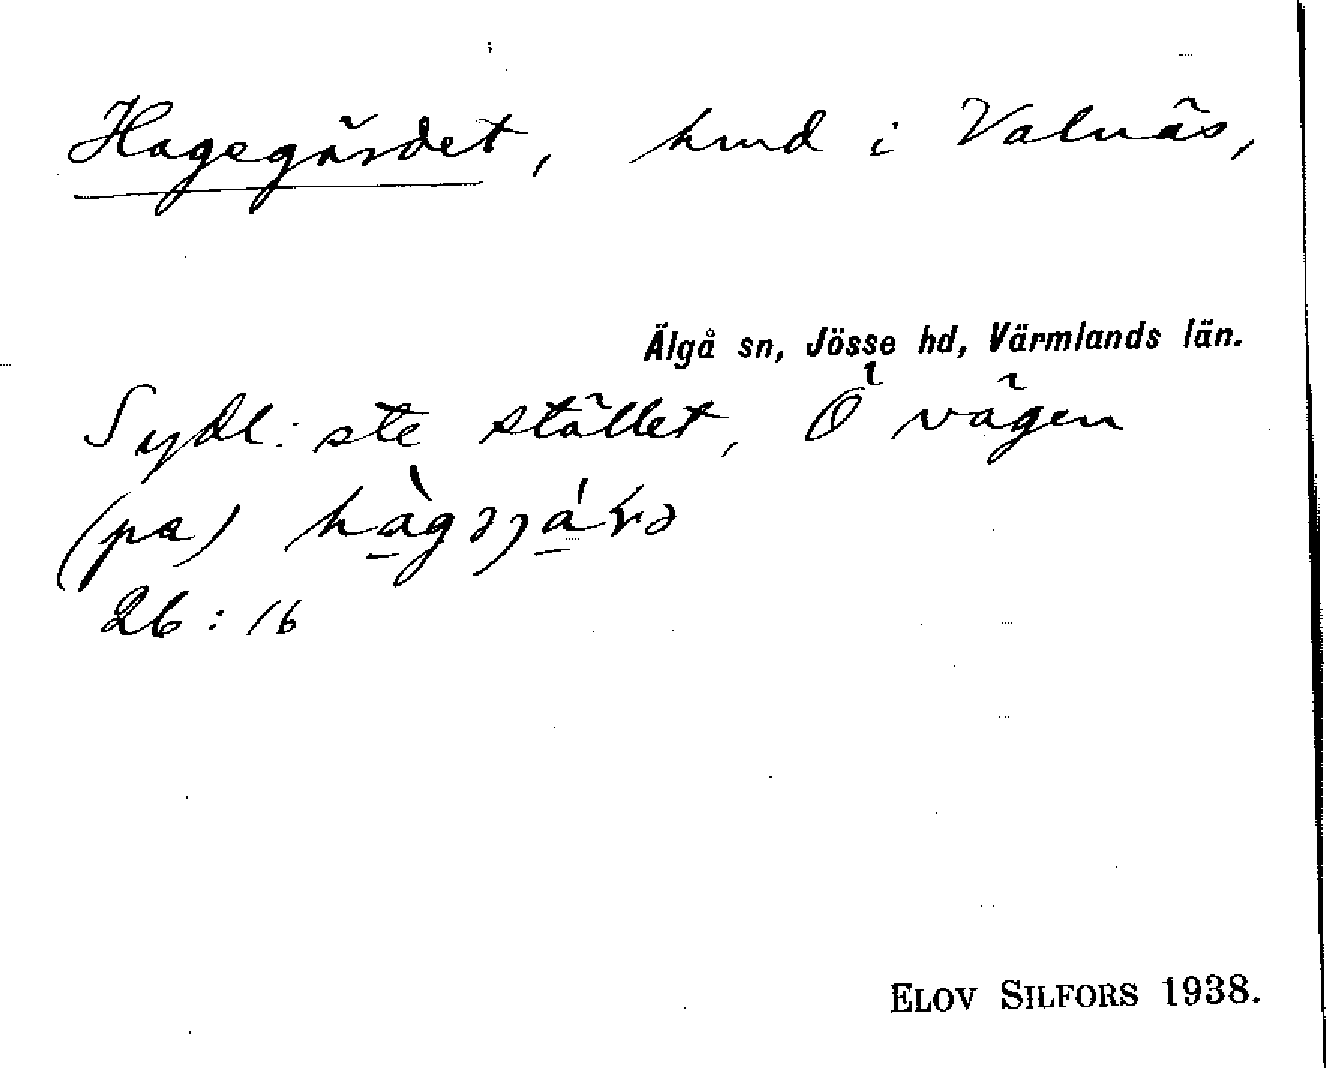 Hagegärdet, hmd i Valnäs,
Älgå sn, Jösse hd, Värmlands län.
Sydl:ste stället, Ö vägen
(pa) hàgəjá
26:16
ELOV SILFORS 1938.